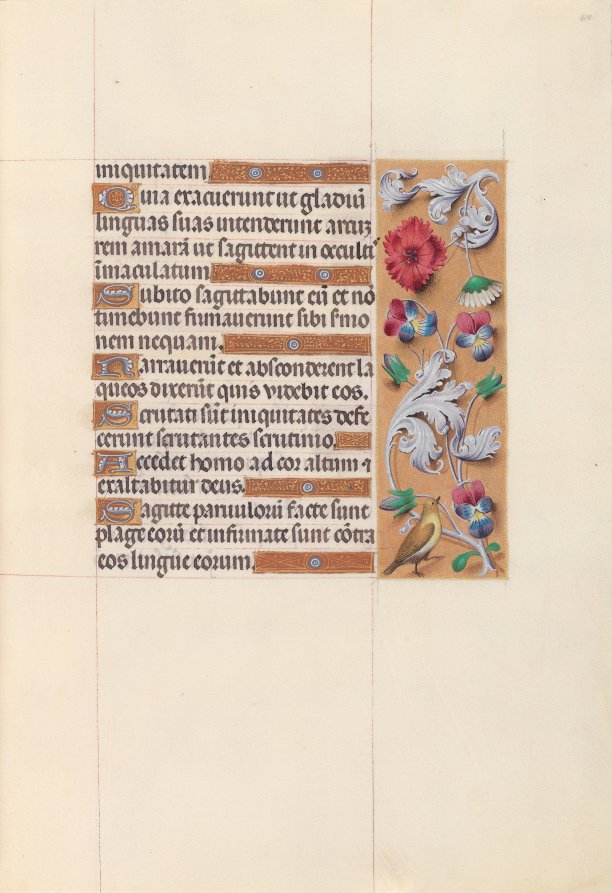 64
iniquitatem
Quia exacuerunt ut gladiū
linguas suas intenderunt arcū
rem amarā ut sagittent in occult̄
īmaculatum
Subito sagittabunt eū et nō
timebunt firmauerunt sibi s̄mo
nem nequam.
Narrauerūt et absconderent la
queos dixerūt quis videbit eos.
Scrutati sūt iniquitates defe
cerunt scrutantes scrutinio.
Accedet homo ad cor altum ⁊
exaltabitur deus.
Sagitte paruulorū facte sunt
plage eorū et infirmate sunt cōtra
eos lingue eorum.